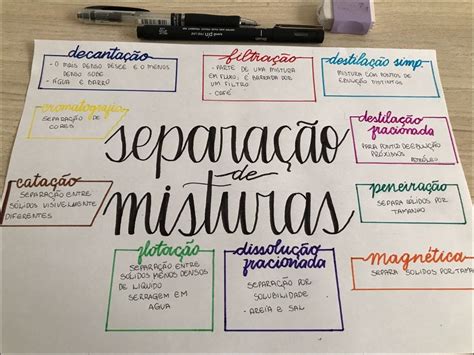 decantação
- O mais denso desce e o menos denso sobe
- Água e barro
filtração
- Parte de uma mistura em fluxo, é barrada por um filtro
- Café
destilação simp.
Mistura com pontos de ebulição distintos
cromatografia
Separação de cores
separação
de
misturas
destilação
fracionada
Para ponto de ebulição próximos
catação
Separação entre
sólidos visivelmente
diferentes
peneiração
Separa sólidos por
tamanho
flotação
Separação entre
sólidos menos densos
de líquido
Serragem em
água
dissolução
fracionada
Separação por
solubilidade
- Areia e sal
magnética
Separa sólidos por